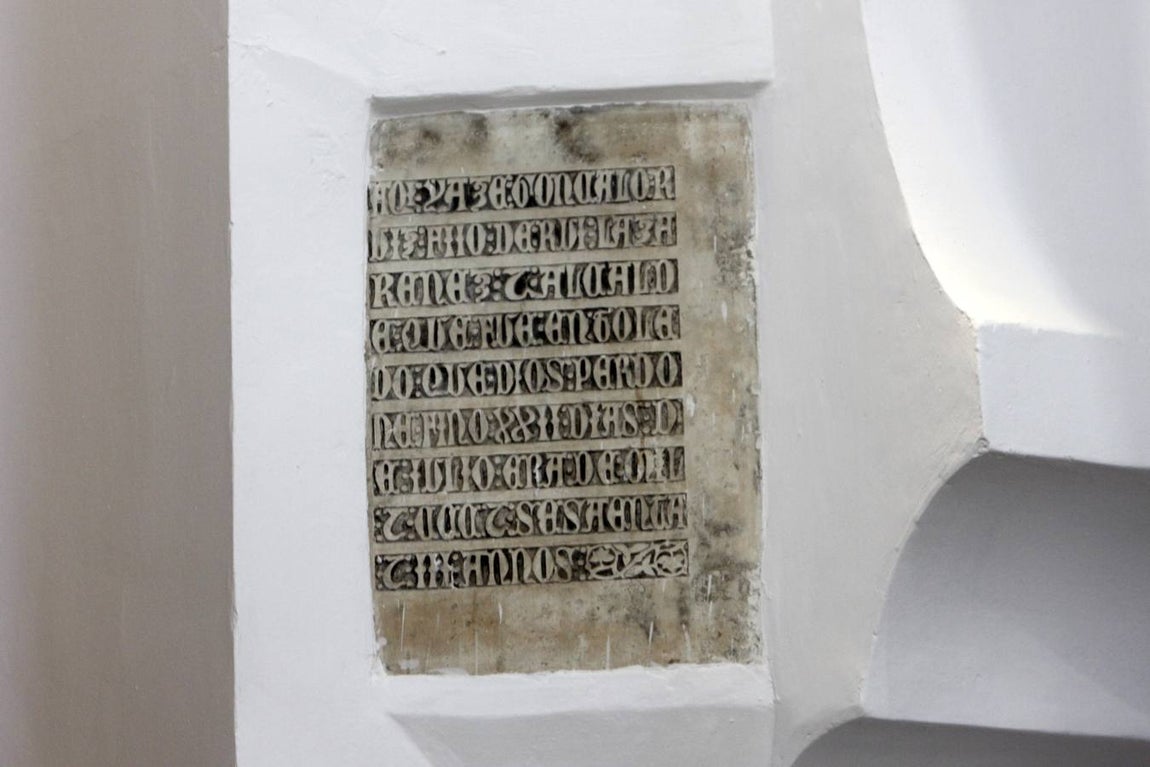 AQI : YAZE : GONÇALO R
UIZ FIIO DE RUI LAZA
RENEZ : T ALCALD
E QUE FUE EN TOLE
DO : QUE DIOS : PERDO
NE FINO : XXII DIAS : D
E IULIO : ERA DE MIL
T CCC T SESAENTA
T III ANNOS :